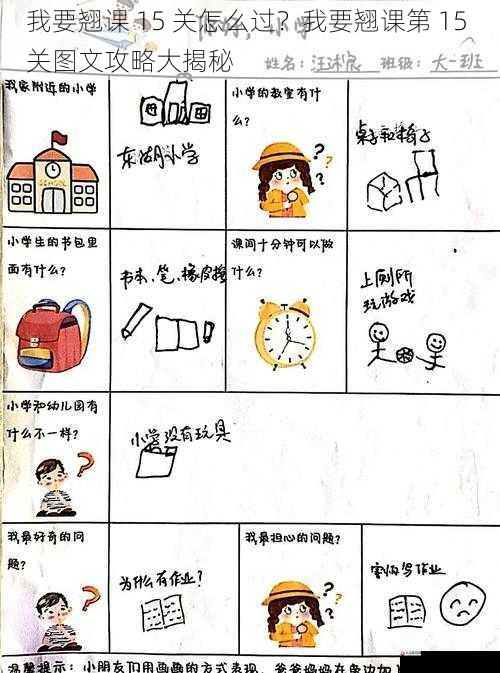 我要翘课 15 关怎么过？我要翘课第 15
关图文攻略大揭秘
小学
姓名：汪沐宸 班级：大一班
我家附近的小学
SCHOOL
东湖小学
小学的教室有什
么？
桌子和椅子
小学生的书包里
面有什么？
书本、笔、橡皮擦
课间十分钟可以做
什么？
上厕所
玩游戏
小学和幼儿园有
什么不一样？
小学没有玩具
我最好奇的问
题？
为什么有作业？
我最担心的问题？
害怕写作业
温馨提示：小朋友们用画画的方式表现，爸爸妈妈在旁边加